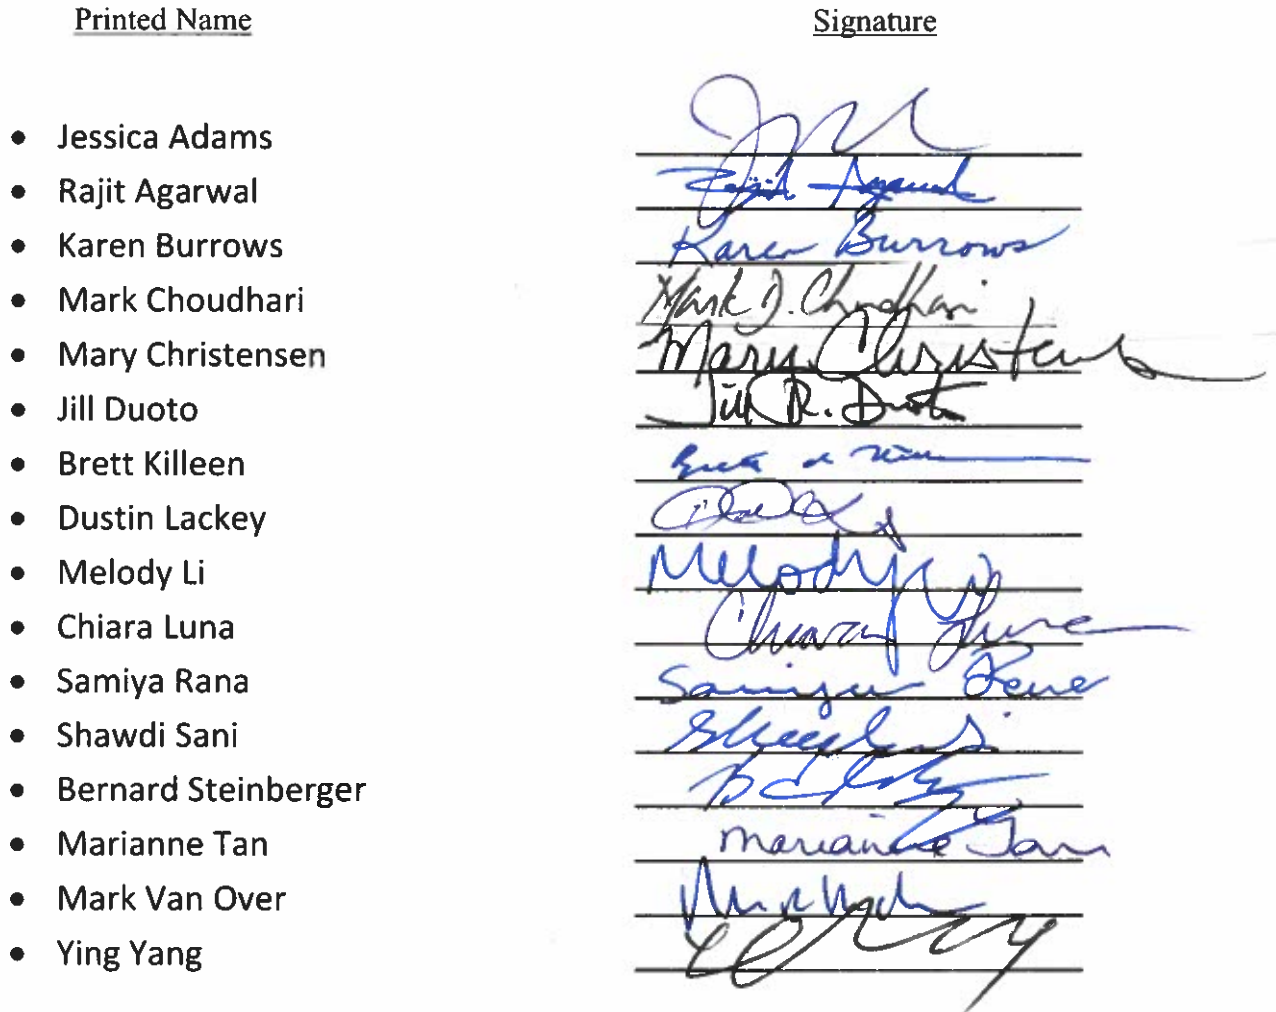 Printed Name Signature
• Jessica Adams
• Rajit Agarwal Rajit Agarwal
• Karen Burrows Karen Burrows
• Mark Choudhari Mark D. Choudhari
• Mary Christensen Mary Christens
• Jill Duoto Jill R. Duoto
• Brett Killeen
• Dustin Lackey
• Melody Li Melody Li
• Chiara Luna Chiara Luna
• Samiya Rana Samiya Rana
• Shawdi Sani
• Bernard Steinberger
• Marianne Tan Marianne Tan
• Mark Van Over
• Ying Yang